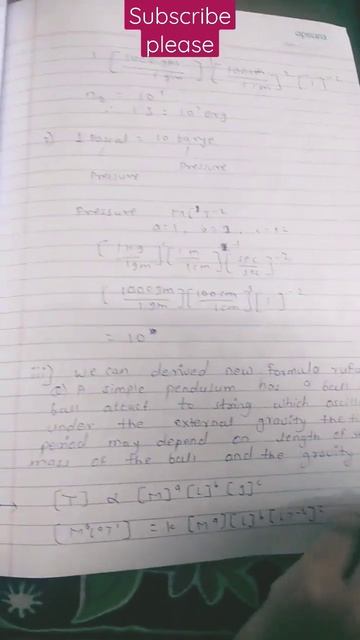 Subscribe
please
apsara
1 [1000gm / 1gm] [100cm / 1cm]² [1]⁻²
n₂ = 10⁷
∴ 1 J = 10⁷ erg
= 10
Pressure
Pressure
Pressure
[1kg / 1gm] [1m / 1cm]⁻¹ [sec / sec]⁻²
[1000gm / 1gm] [100cm / 1cm]⁻¹ [1]⁻²
= 10
iii) we can derived new formula
A simple pendulum has a ball
ball to string which
under the external gravity the
period may depend on length of
mass of the ball and the gravity
→ [T] α [M]ᵃ [L]ᵇ [g]ᶜ
= k [Mᵃ] [L]ᵇ [LT⁻²]ᶜ